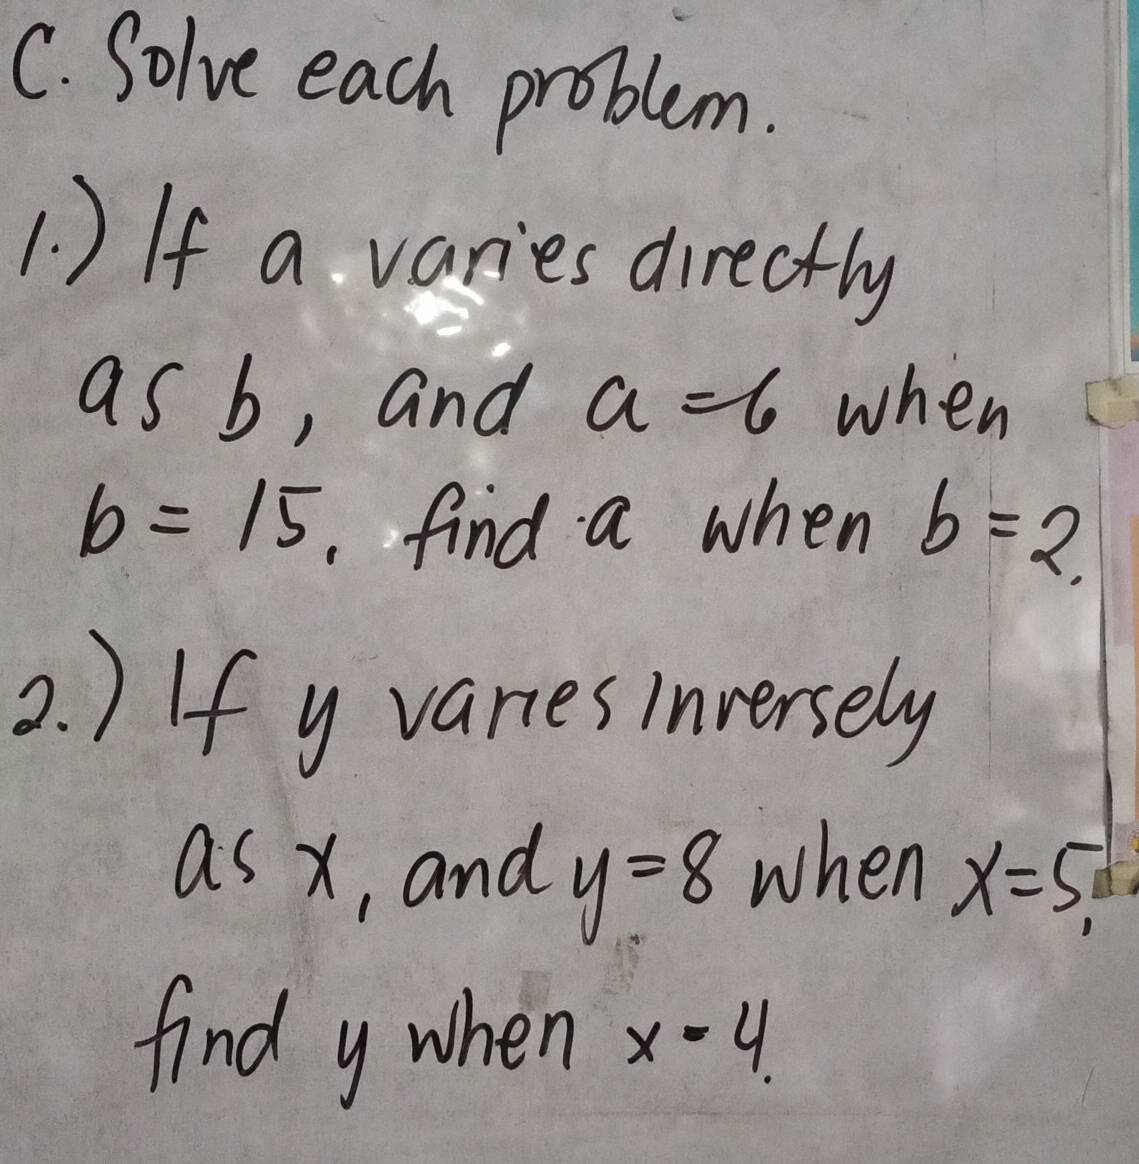 C. Solve each problem.
1.) If a varies directly
as b, and a = 6 when
b = 15, find a when b = 2.
2.) If y varies inversely
as x, and y = 8 when x = 5,
find y when x = 4.